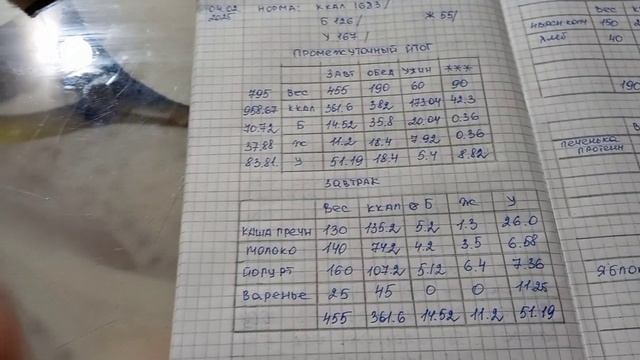 04.02 2025 НОРМА: ККАЛ 1683/
Б 126/ Ж 55/
У 167/
ПРОМЕЖУТОЧНЫЙ ИТОГ
ЗАВТ ОБЕД УЖИН ***
795 ВЕС 455 190 60 90
958.67 ККАЛ 361.6 382 173.04 42.3
70.72 Б 14.52 35.8 20.04 0.36
37.88 Ж 11.2 18.4 7.92 0.36
83.81 У 51.19 18.4 5.4 8.82
ЗАВТРАК
ВЕС ККАЛ Б Ж У
КАША ГРЕЧН 130 135.2 5.2 1.3 26.0
МОЛОКО 140 74.2 4.2 3.5 6.58
ЙОГУРТ 160 107.2 5.12 6.4 7.36
ВАРЕНЬЕ 25 45 0 0 11.25
455 361.6 14.52 11.2 51.19
ВЕС
150
ХЛЕБ 40
190
ПЕЧЕНЬКА ПРОТЕИН
ЯБЛО